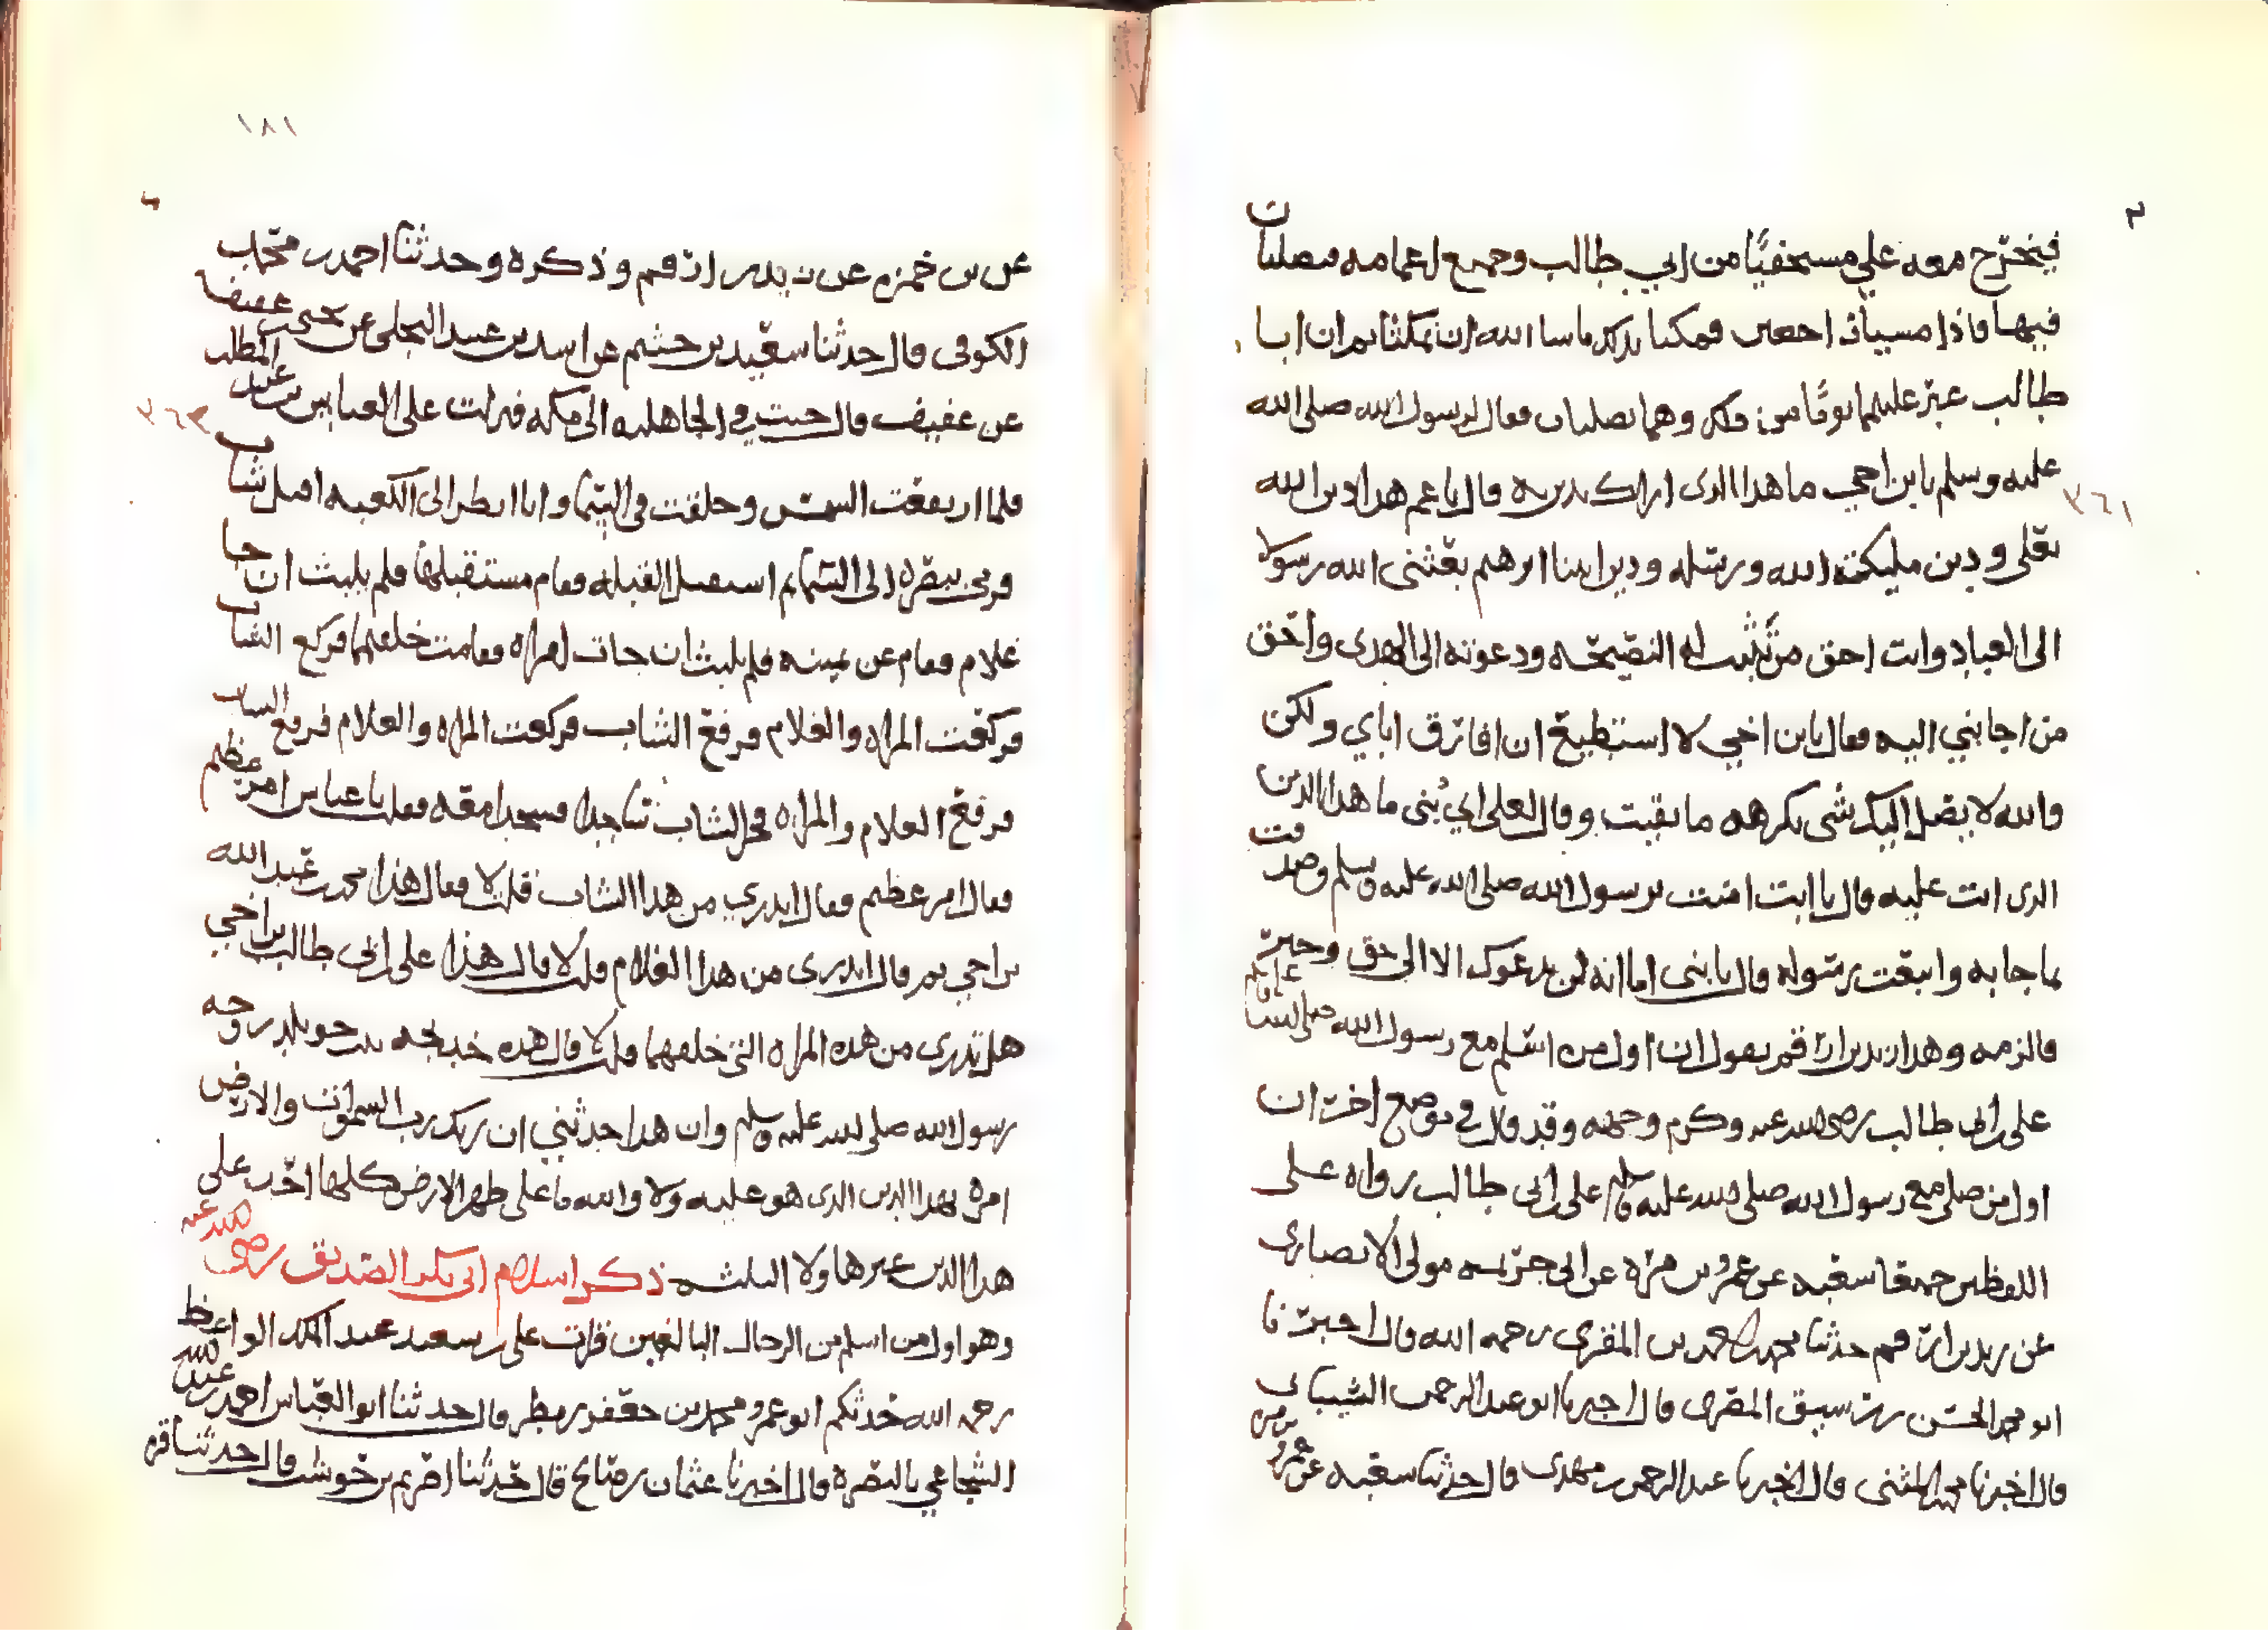 فيخرج معه علي مستخفيًا من ابي طالب وجميع اعمامه فيصليان
فيها فاذا امسيا اجعين فمكثا بذلك ما شا الله ان يمكثا ثم ان ابا
طالب عبر عليهما يومًا من وهما يصليان فقال لرسول الله صلى الله
عليه وسلم يابن اخي ما هذا الذى اراك تدين به قال يا عم هذا دين الله
تعلى ودين مليكته الله ورسله ودين ابينا ابرهيم بعثني الله رسولا
الى العباد وانت احق من له النصيحه ودعوته الى الهدى واحق
من اجابني اليه فقال يابن اخي لا استطيع ان افارق اباي ولكن
والله لا يصل اليك شى تكرهه ما بقيت وقال لعلى اي بُنى ما هذا الدين
الذى انت عليه قال يا ابت امنت برسول الله صلى الله عليه وسلم وصدقت
بما جا به واتبعت رسوله قال يا بنى اما انه لن يدعوك الا الى حق وخير
فالزمه وهذا زيد بن ارقم يقول ان اول من اسلم مع رسول الله صلى الله عليه وسلم
على بن ابى طالب رضى الله عنه وكرم وجهه وقد قال في موضع اخر ان
اول من صلى مع رسول الله صلى الله عليه وسلم على بن ابى طالب رواه على
اللفظين جميعًا شعبه عن عمرو بن مره عن ابى حمزه مولى الانصارى
عن زيد بن ارقم حدثنا محمد بن احمد بن المقرى رحمه الله قال اخبرنا
ابو محمد الحسن بن رشيق المصرى قال اخبرنا ابو عبد الرحمن الشيبانى
قال اخبرنا محمد بن المثنى قال اخبرنا عبد الرحمن بن مهدى قال حدثنا شعبه عن عمرو بن مره
٣٦١
١٨١
عن بن حمزه عن زيد بن ارقم وذكره وحدثنا احمد بن محمد
الكوفى قال حدثنا سعيد بن خثيم عن اسد بن عبد البجلى عن يحيى بن عفيف
عن عفيف قال جيت في الجاهليه الى مكه فنزلت على العباس بن عبد المطلب
فلما ارتفعت الشمس وحلقت في السما وانا انظر الى الكعبه اقبل شاب
فرمى ببصره الى السما ثم استقبل القبله فقام مستقبلها فلم يلبث ان جا
غلام فقام عن يمينه فلم يلبث ان جات امراه فقامت خلفهما فركع الشاب
فركعت المراه والغلام فرفع الشاب فركعت المراه والغلام فرفع الشاب
فرفع الغلام والمراه فخر الشاب ساجدا فسجدا معه فقلت يا عباس امر عظيم
فقال امر عظيم فقال اتدري من هذا الشاب قلت لا فقال هذا محمد بن عبد الله
بن اخي ثم قال اتدرى من هذا الغلام قلت لا قال هذا على بن ابى طالب بن اخي
هل تدرى من هذه المراه التى خلفهما قلت لا قال هذه خديجه بنت خويلد زوجه
رسول الله صلى الله عليه وسلم وان هذا حدثني ان ربك رب السموات والارض
امره بهذا الدين الذى هو عليه ولا والله ما على ظهر الارض كلها احد على
هذا الدين غير هاولا الثلثه ذكر اسلام ابى بكر الصديق رضى الله عنه
وهو اول من اسلم من الرجال البالغين قرات على سعيد عبد الملك الواعظ
رحمه الله حدثكم ابو عمرو محمد بن جعفر بن مطر قال حدثنا ابو العباس احمد بن عبد الله
الشجاعي بالبصره قال اخبرنا عثمان بن قال حدثنا بن حوشب قال حدثنا قره
٣٦٣